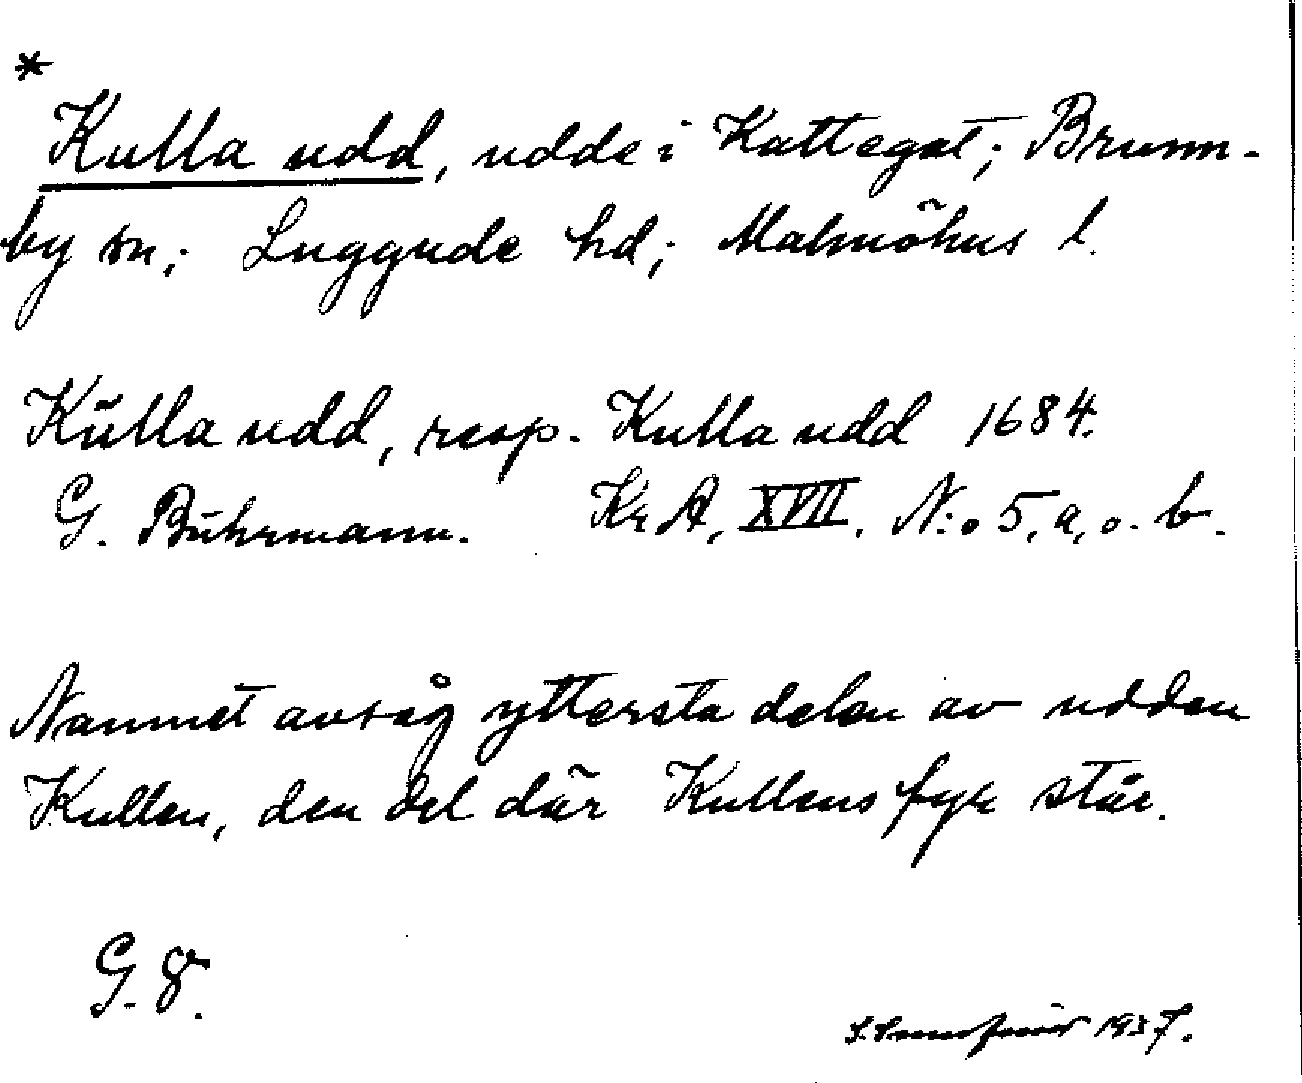 *
Kulla udd, udde i Kattegat; Brunn-
by sn; Luggude hd; Malmöhus l.
Kŭlla udd, resp. Kulla udd 1684.
G. Buhrmann. Kr A, XVII. N:o 5, a, o. b.
Namnet avsåg yttersta delen av udden
Kullen, den del där Kullens fyr står.
G. 8.
1937.